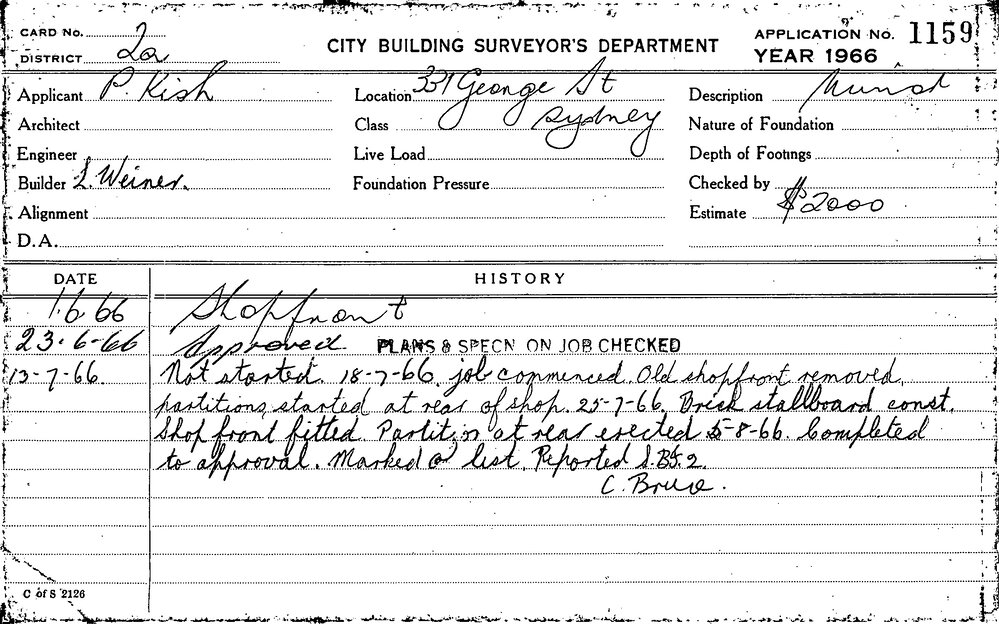 CARD No. 2
DISTRICT 2a
CITY BUILDING SURVEYOR'S DEPARTMENT
APPLICATION No. 1159
YEAR 1966
Applicant P. Kish
Location 331 George St
Sydney
Description
Architect
Class
Nature of Foundation
Engineer
Live Load
Depth of Footings
Builder L. Weiner.
Foundation Pressure
Checked by
Alignment
Estimate $2000
D.A.
DATE HISTORY
1.6.66 Shopfront
23.6-66 Approved. PLANS & SPECN ON JOB CHECKED
13-7-66. Not started. 18-7-66. job commenced. Old shopfront removed,
partitions started at rear of shop. 25-7-66. Brick stallboard const.
Shop front fitted. Partition at rear erected 5-8-66. Completed
to approval. Marked list. Reported
C. Bruce.
C of S 2126